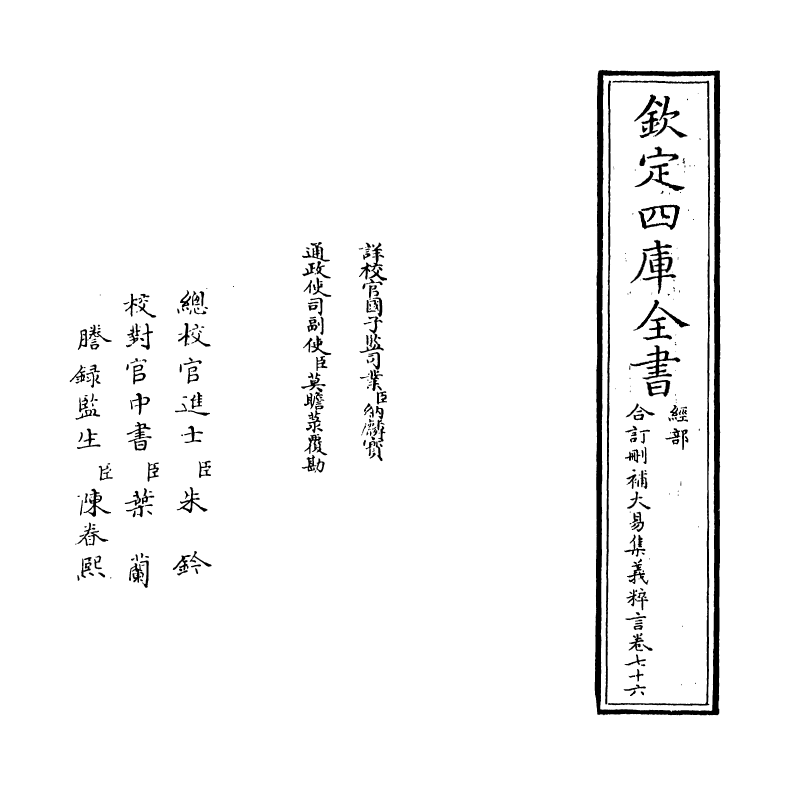 欽定四庫全書
經部
合訂刪補大易集義粹言卷七十六
詳校官國子監司業臣納麟寶
通政使司副使臣莫瞻菉覆勘
總校官進士臣朱鈐
校對官中書臣葉蘭
謄録監生臣陳春熙